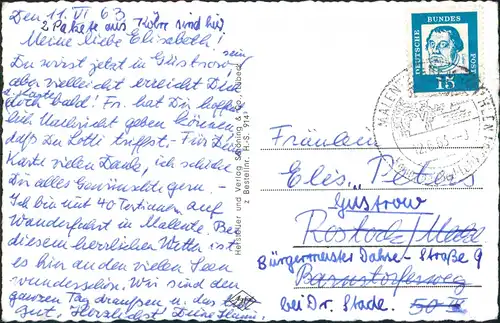 Den 11. VI 63.
2 Pakete aus Köln sind hier
Meine liebe Elisabeth!
Du wirst jetzt in Güstrow sein
aber vielleicht erreicht Dich
d. Karte
doch bald! Fr. hat Dir hoffentl.
Nachricht geben können,
daß Du Lotti triffst. - Für Deine
Karte vielen Dank, ich schicke
Dir alles Gewünschte gern. -
Ich bin mit 40 Tertianern auf
Wanderfahrt in Malente. Bei
diesem herrlichen Wetter ist
es hier an den vielen Seen
wunderschön. Wir sind den
ganzen Tag draußen u. das tut
gut. Herzlichst Deine
Hersteller und Verlag Schöning & Co., Lübeck
z Bestellnr. H.-S. 914
DEUTSCHE BUNDES POST
15
MALENTE
Fräulein
Elis. Peters
Güstrow
Rostock / Meckl.
Bürgermeister Dahse-Straße 9
Barnstorferweg
bei Dr. Stade. 50 IV